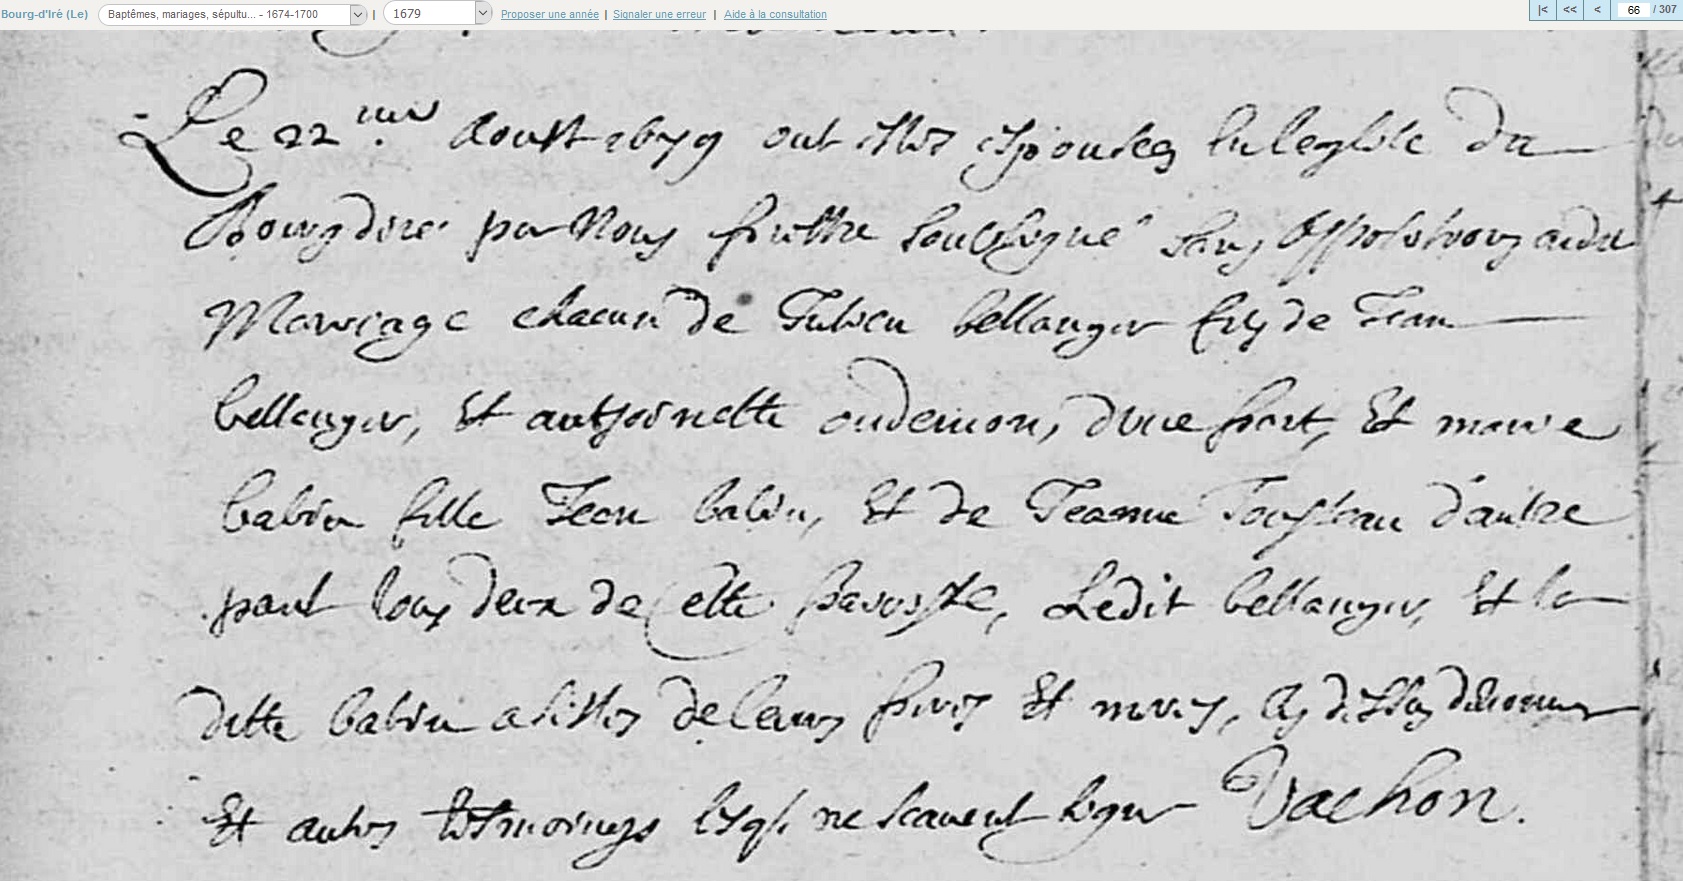 Bourg-d'Iré (Le) Baptêmes, mariages, sépultu... - 1674-1700 | 1679 Proposer une année | Signaler une erreur | Aide à la consultation |< << < 66 / 307
Le 22me Aoust 1679 ont estes espouses en leglise du
Bourg dire par Nous prestre soubsigne sans oppositions audit
Mariage chacun de Julien bellanger fils de Jean
bellanger, Et anthoinette oudemon, d'une part, Et marie
babin fille Jean babin, Et de Jeanne Tousteau d'autre
part tous deux de Cette paroisse, Ledit bellanger, Et la
ditte babin assistes de leurs peres Et meres, cy dessus denommes
Et autres tesmoings lesqls ne scavent signer Vachon.